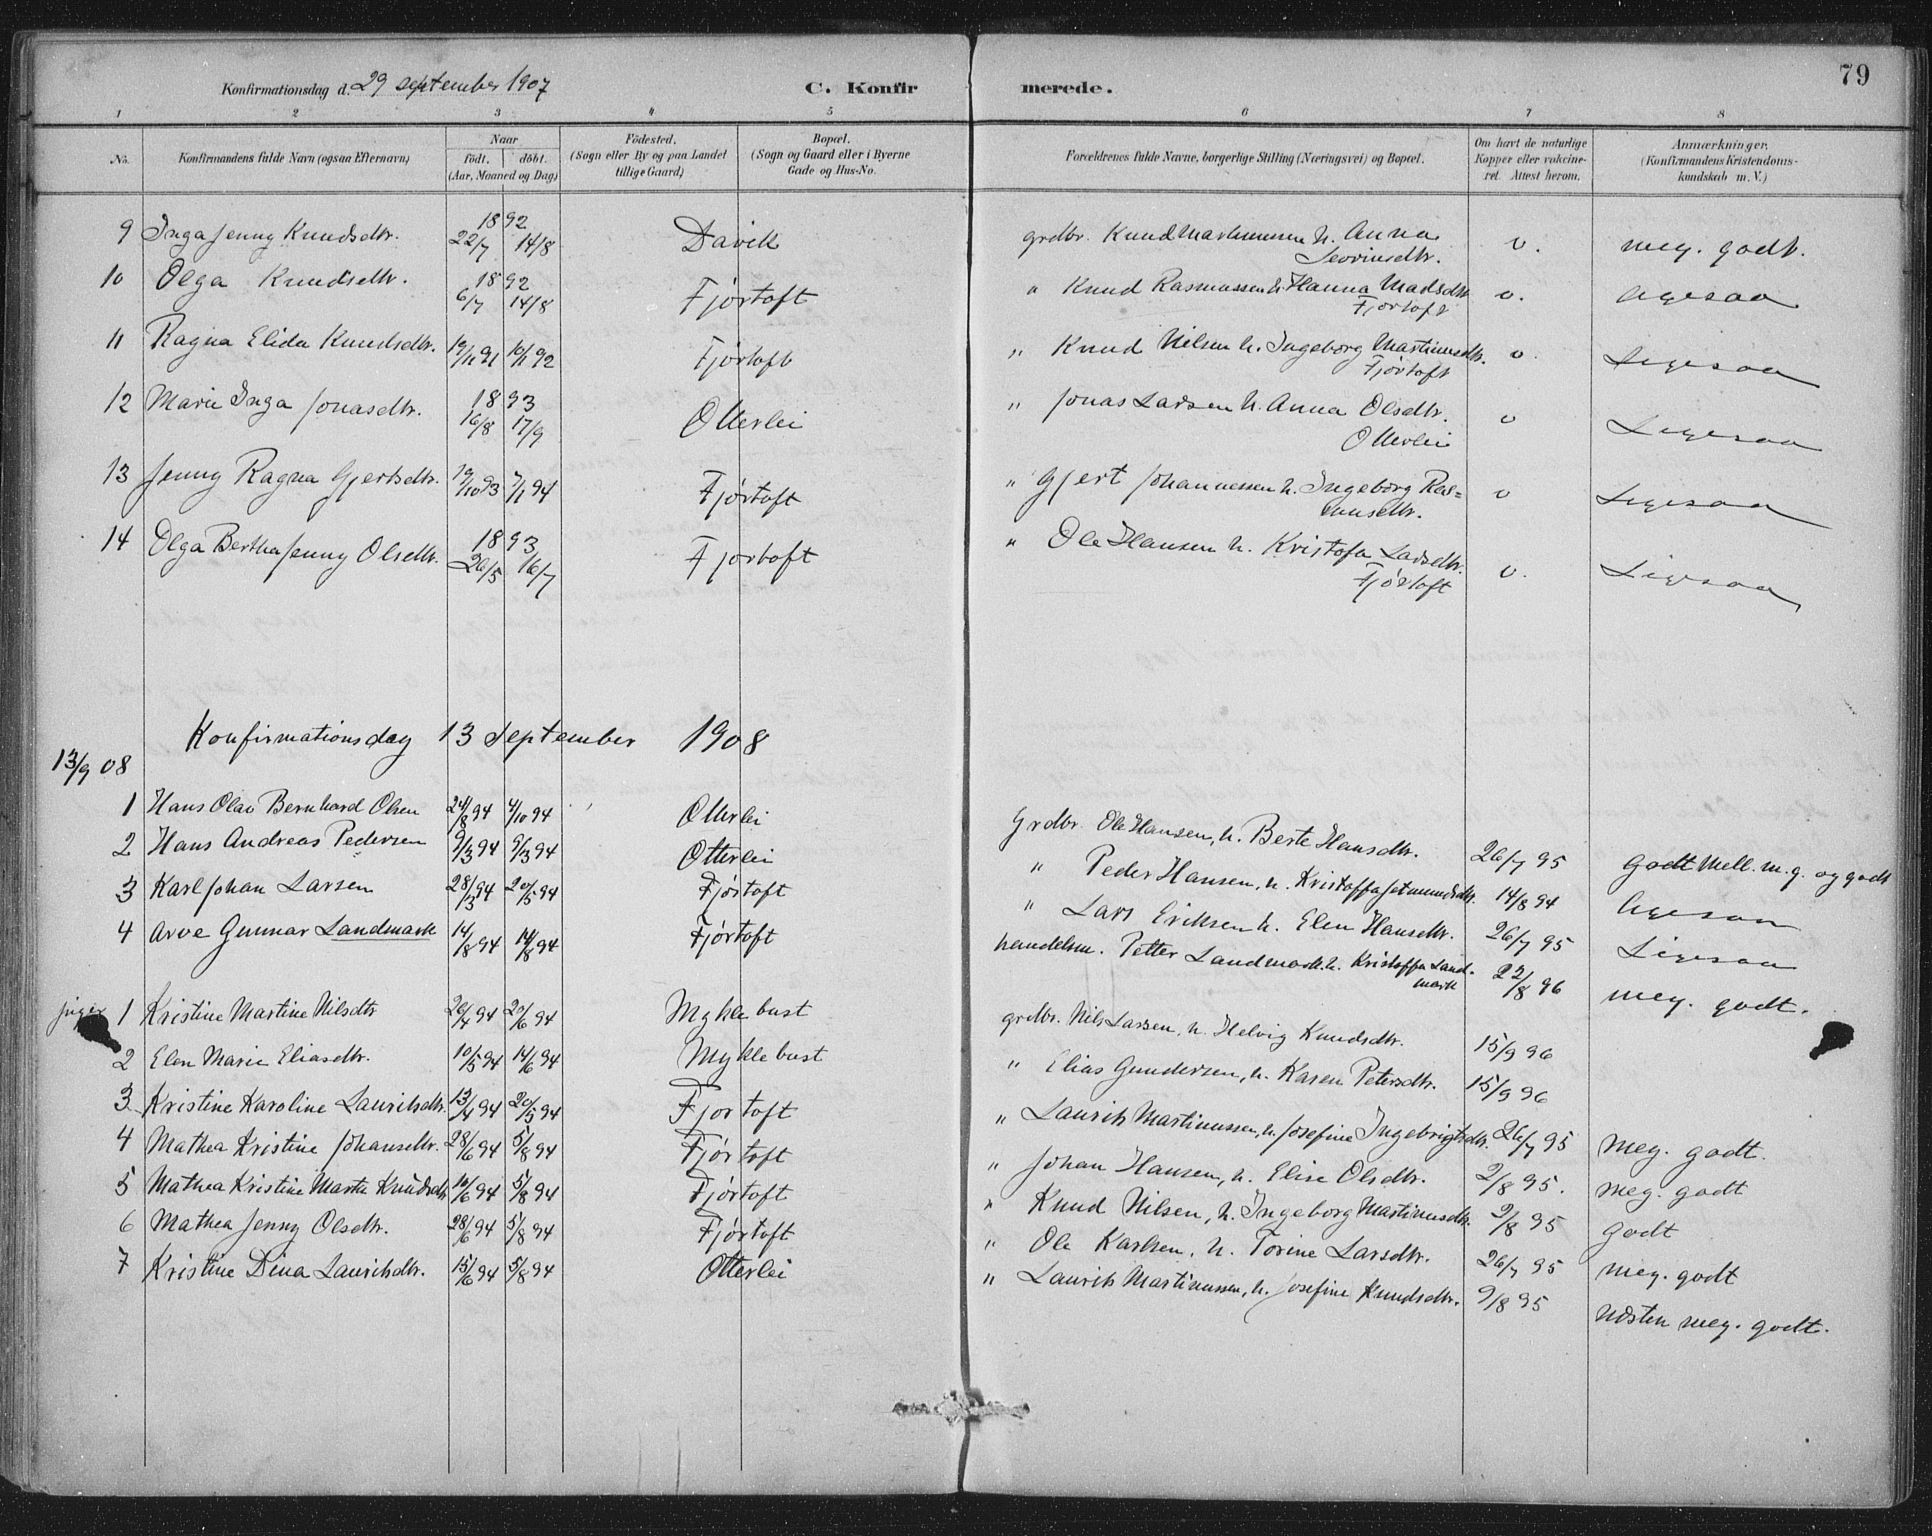 79
Konfirmationsdag d. 29 september 1907 C. Konfirmerede.
1 2 3 4 5 6 7 8
No. Konfirmandens fulde Navn (ogsaa Efternavn) Naar födt. döbt. (Aar, Maaned og Dag) Födested. (Sogn eller By og paa Landet tillige Gaard) Bopæl. (Sogn og Gaard eller i Byerne Gade og Hus-No. Forældrenes fulde Navne, borgerlige Stilling (Næringsvei) og Bopæl. Om havt de naturlige Kopper eller vakcineret. Attest herom. Anmærkninger. (Konfirmandens Kristendomskundskab m. V.)
9 Inga Jenny Knudsdtr. 1892 22/7 14/8 Davik grdbr. Knud Martinussen h. Anna Severinsdtr. v. meg. godt.
10 Olga Knudsdtr. 1892 6/7 14/8 Fjørtoft " Knud Rasmussen h. Hanna Madsdtr. Fjørtoft v. ligesaa
11 Ragna Elida Knudsdtr. 19/11 91 10/1 92 Fjørtoft " Knud Nilsen h. Ingeborg Martinusdtr. Fjørtoft v. Ligesaa
12 Marie Inga Jonasdtr. 1893 16/8 17/9 Otterlei " Jonas Larsen h. Anna Olsdtr. Otterlei v Ligesaa
13 Jenny Ragna Gjertsdtr. 19/10 93 7/1 94 Fjørtoft " Gjert Johannessen h. Ingeborg Rasmusdtr. v Ligesaa
14 Olga Berthe Jenny Olsdtr. 1893 26/5 16/7 Fjørtoft " Ole Hansen h. Kristofa Larsdtr. Fjørtoft v. Ligesaa
Konfirmationsdag 13 September 1908
13/9 08
1 Hans Olav Bernhard Olsen 24/8 94 4/10 94 Otterlei Grdbr. Ole Hansen, h. Berte Hansdtr. 26/7 95 godt Mell. m. g. og godt
2 Hans Andreas Pedersen 9/3 94 9/3 94 Otterlei " Peder Hansen, h. Kristoffa Jetmundsdtr. 14/8 94 ligesaa
3 Karl Johan Larsen 28/3 94 20/5 94 Fjørtoft " Lars Eriksen h. Elen Hansdtr. 26/7 95 Ligesaa
4 Arve Gunnar Landmark 14/8 94 14/8 94 Fjørtoft handelsm. Petter Landmark h. Kristoffa Landmark 22/8 96 meg. godt.
piger
1 Kristine Martine Nilsdtr 26/4 94 20/6 94 Myklebust grdbr. Nils Larsen, h. Helvig Knudsdtr. 15/9 96
2 Elen Marie Eliasdtr. 10/5 94 14/6 94 Myklebust " Elias Gundersen, h. Karen Petersdtr. 15/9 96
3 Kristine Karoline Lauritsdtr. 13/4 94 20/5 94 Fjørtoft " Laurits Martinussen, h. Josefine Ingebrigtsdtr. 26/7 95 meg. godt.
4 Mathea Kristine Johansdtr. 28/6 94 5/8 94 Fjørtoft " Johan Hansen, h. Elise Olsdtr. 2/8 95. meg. godt
5 Mathea Kristine Marte Knudsdtr 10/6 94 5/8 94 Fjørtoft " Knud Nilsen, h. Ingeborg Martinusdtr. 2/8 95 godt
6 Mathea Jenny Olsdtr. 28/6 94 5/8 94 Fjørtoft " Ole Karlsen, h. Torine Larsdtr. 26/7 95 meg. godt
7 Kristine Dina Lauritsdtr. 15/6 94 5/8 94 Otterlei " Laurits Martinussen, h. Josefine Knudsdtr. 9/8 95 Næsten meg. godt.